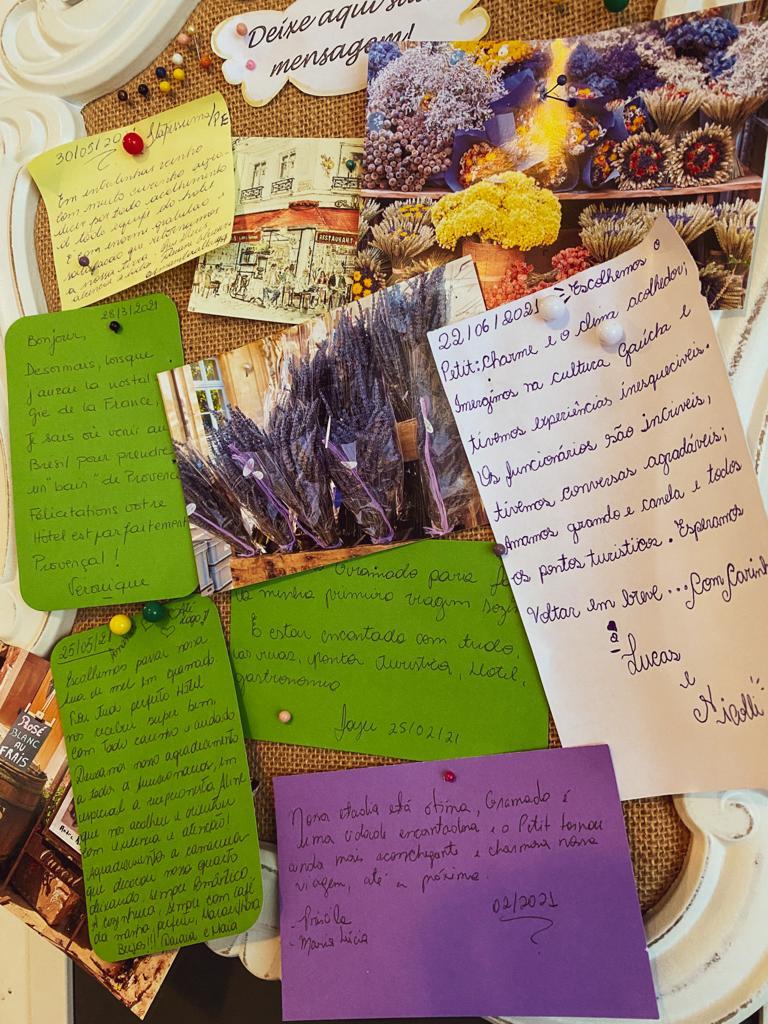 Deixe aqui sua
mensagem!
30/05/20 Itapissuma/PE
Em entrelinhas venho
com muito carinho agra-
decer por todo acolhimento
d toda equipe do hotel
E com enorme gratidão e
satisfação que retornamos
a nossa terra
RESTAURANT
28/3/2021
Bonjour,
Desormais, lorsque
j'aurai la nostal-
gie de la France,
Je sais où venir au
Brésil pour prendre
un "bain" de Provence
Félicitations votre
Hôtel est parfaitement
Provençal !
Veronique
22/06/2021 "Escolhemos o
Petit: Charme e o clima acolhedor;
Imergimos na cultura Gaúcha e
tivemos experiências inesquecíveis.
Os funcionários são incríveis,
tivemos conversas agradáveis;
Amamos gramado e canela e todos
os pontos turísticos. Esperamos
Voltar em breve... Com Carinh
Lucas
e
Nicolli"
Gramado para
a minha primeira viagem
E estou encantada com tudo,
as ruas, pontos turísticos, hotel,
gastronomia
25/02/21
25/05/21 Até
logo!!
Escolhemos passar nossa
lua de mel em Gramado
nos recebeu super bem,
com todo carinho e cuidado
Deixamos nosso agradecimento
a todos os funcionários, em
especial a recepcionista Aline
que nos acolheu e orientou
com paciência e atenção!
Agradecimento a camareira
que decorou nosso quarto
deixando sempre romântico,
A cozinheira, sempre com café
da manhã perfeito, maravilhoso
Beijos!!! Daiara e Maia
ROSÉ
BLANC
AU
FRAIS
Nossa estadia está ótima, Gramado é
uma cidade encantadora e o Petit tornou
ainda mais aconchegante e charmosa nossa
viagem, até a próxima.
- Priscila
- Maria Lúcia
02/2021